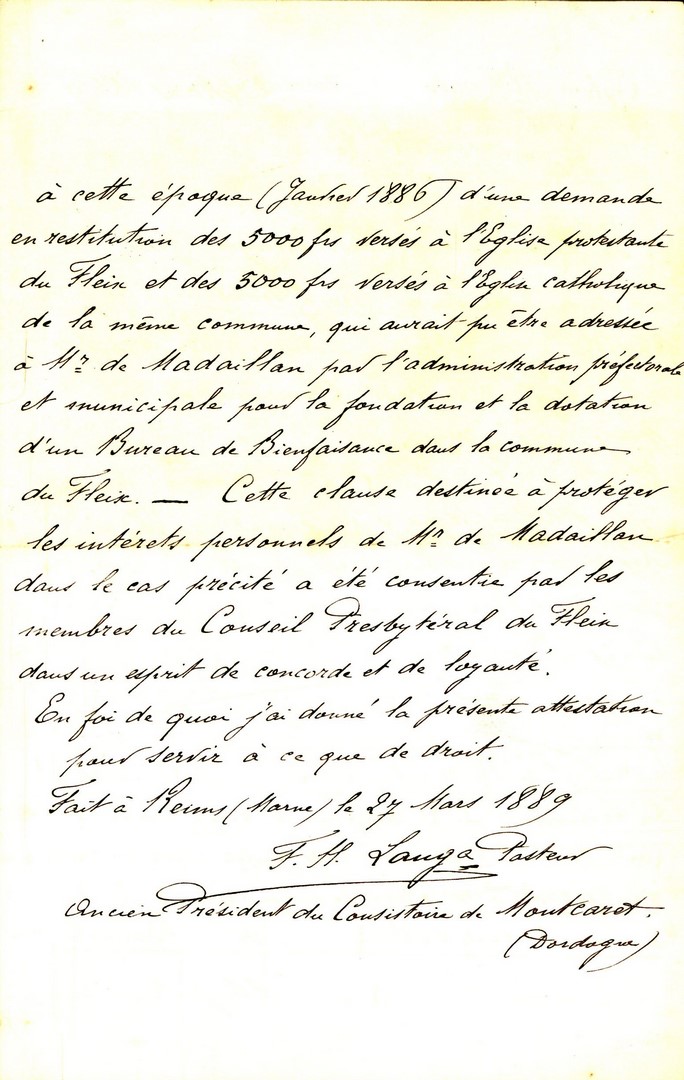 à cette époque (Janvier 1886) d'une demande
en restitution des 5000 frs versés à l'Eglise protestante
du Fleix et des 5000 frs versés à l'Eglise catholique
de la même commune, qui aurait pu être adressée
à Mr de Madaillan par l'administration préfectorale
et municipale pour la fondation et la dotation
d'un Bureau de Bienfaisance dans la commune
du Fleix. — Cette clause destinée à protéger
les intérets personnels de Mr de Madaillan
dans le cas précité a été consentie par les
membres du Conseil Presbytéral du Fleix
dans un esprit de concorde et de loyauté.
En foi de quoi j'ai donné la présente attestation
pour servir à ce que de droit.
Fait à Reims (Marne) le 27 Mars 1889
F. H. Lauga Pasteur
Ancien Président du Consistoire de Montcaret.
(Dordogne)